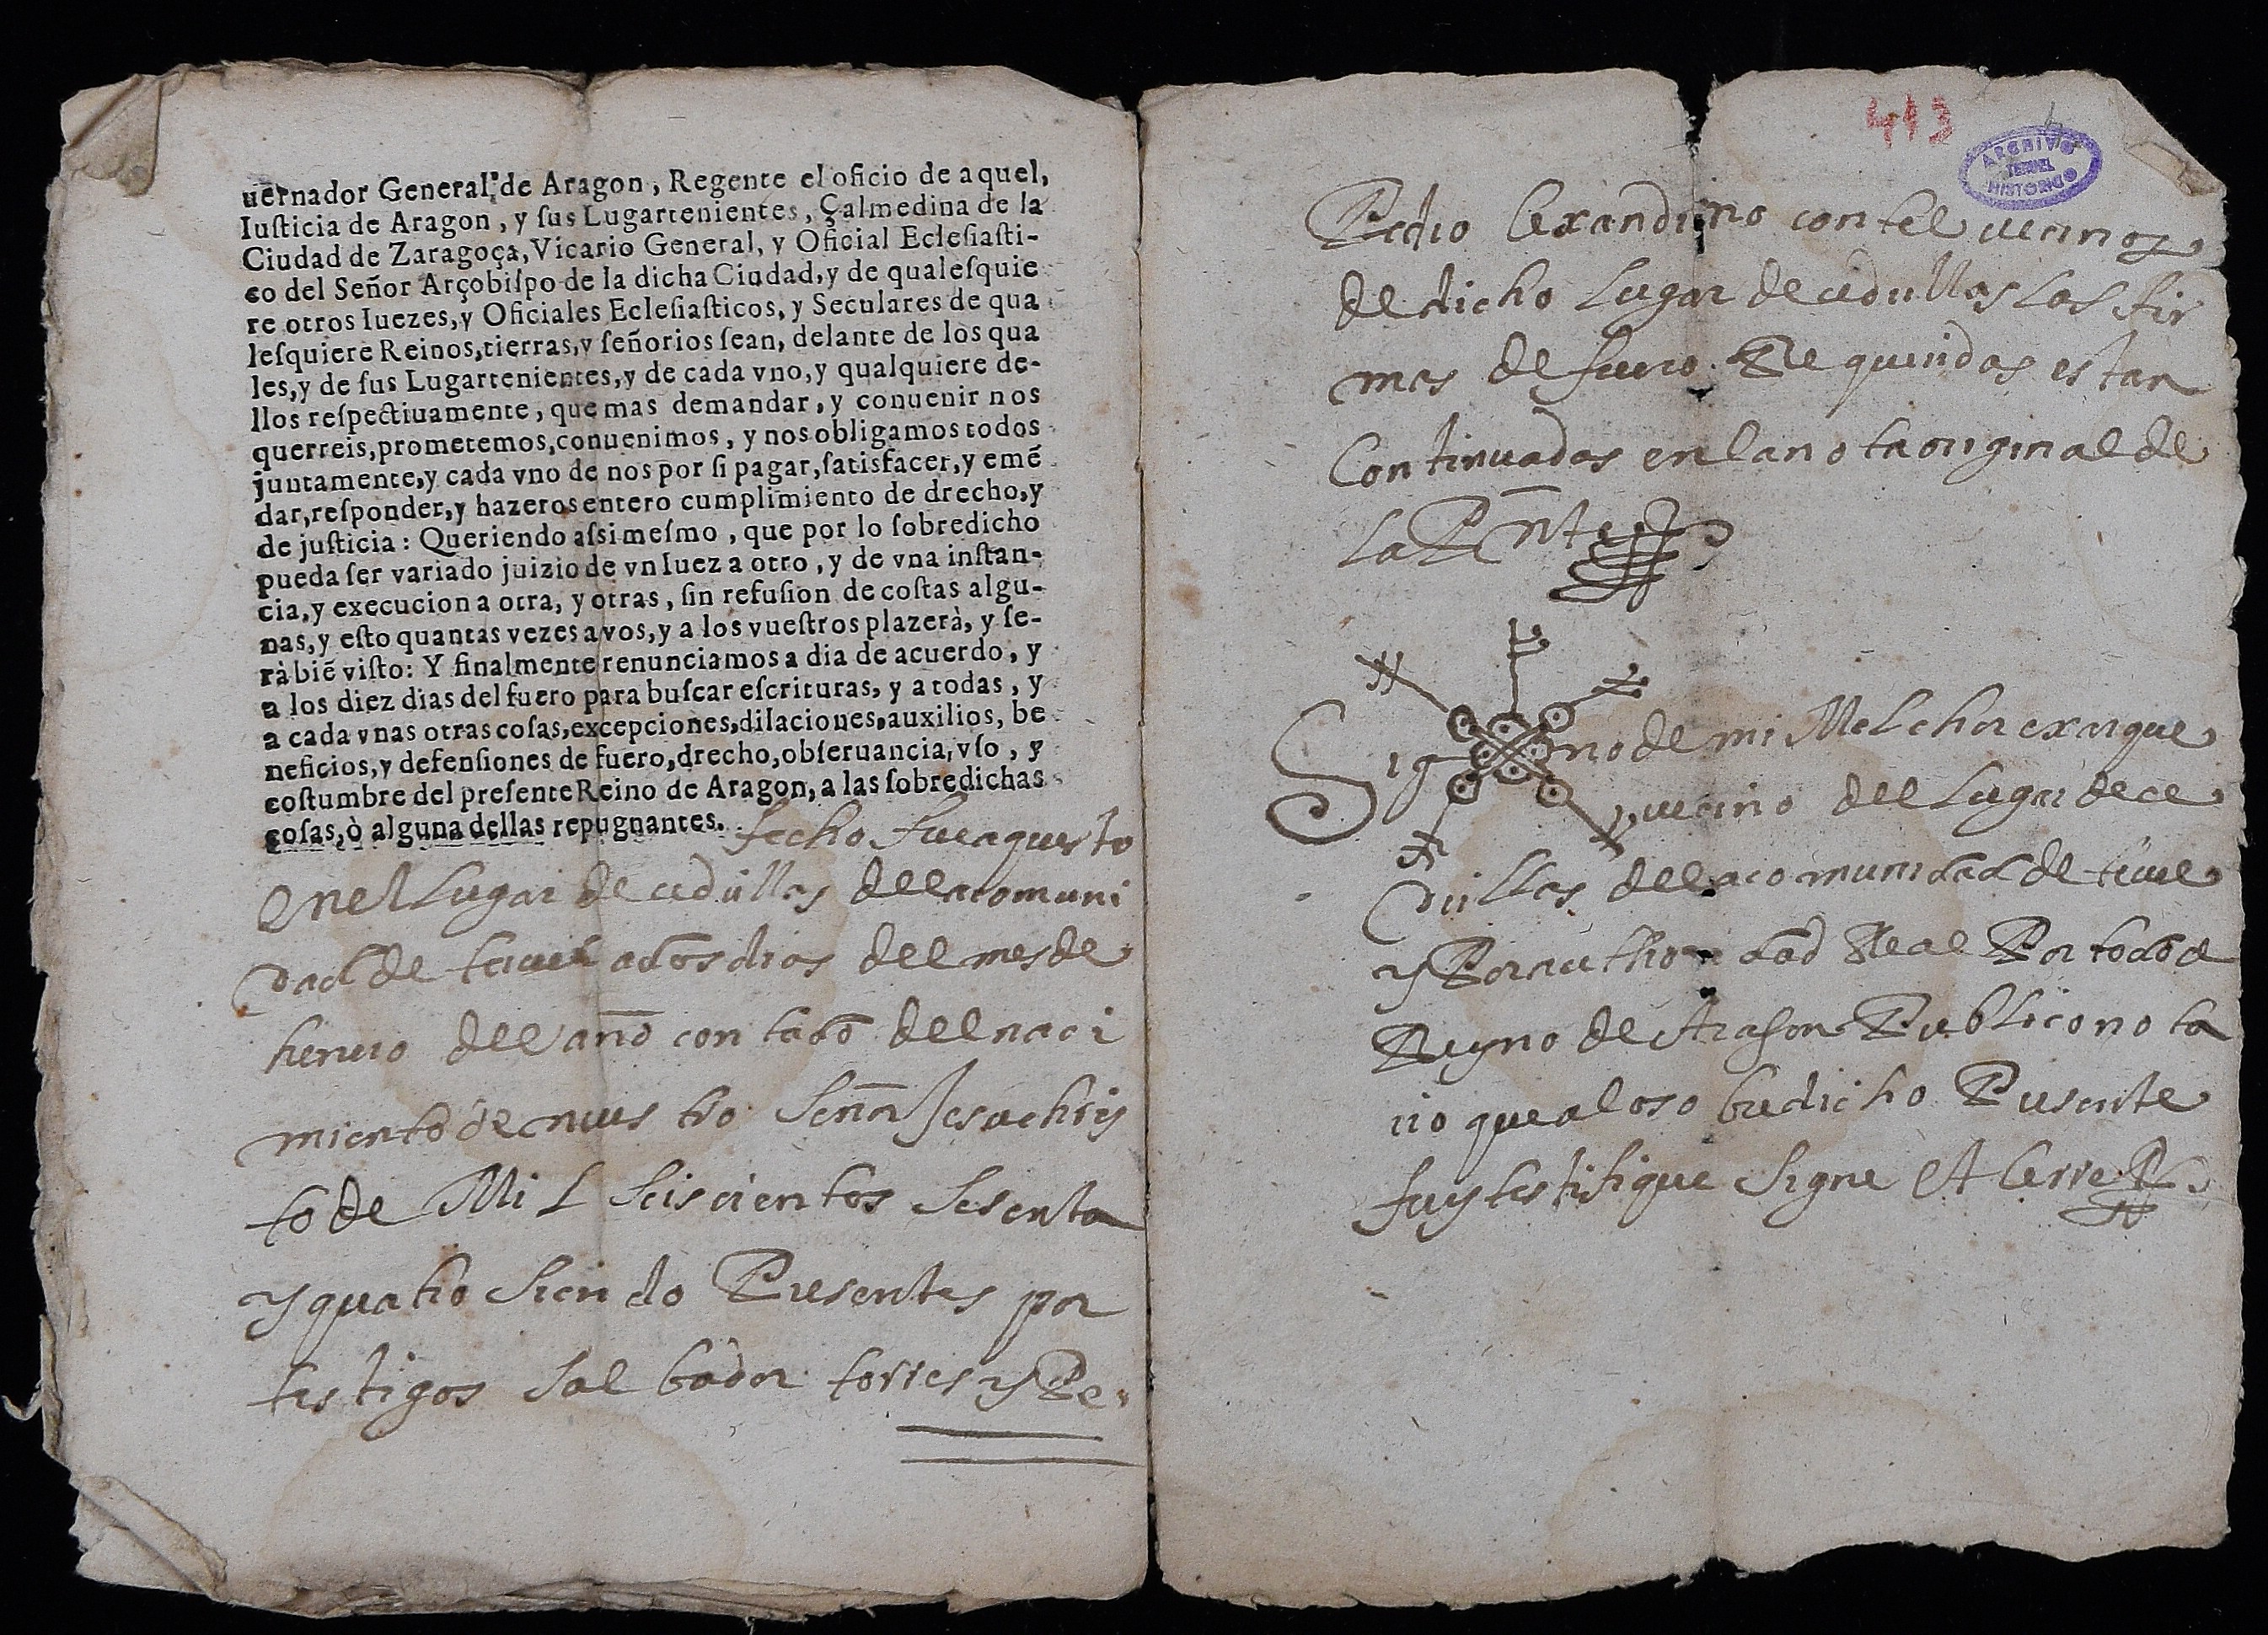 uernador General de Aragon, Regente el oficio de aquel,
Iuſticia de Aragon, y ſus Lugartenientes, Çalmedina de la
Ciudad de Zaragoça, Vicario General, y Oficial Ecleſiaſti-
co del Señor Arçobiſpo de la dicha Ciudad, y de qualeſquie
re otros Iuezes, y Oficiales Ecleſiaſticos, y Seculares de qua
leſquiere Reinos, tierras, y ſeñorios ſean, delante de los qua
les, y de ſus Lugartenientes, y de cada vno, y qualquiere de-
llos reſpectiuamente, que mas demandar, y conuenir nos
querreis, prometemos, conuenimos, y nos obligamos todos
juntamente, y cada vno de nos por ſi pagar, ſatisfacer, y emē
dar, reſponder, y hazeros entero cumplimiento de drecho, y
de juſticia: Queriendo aſsimeſmo, que por lo ſobredicho
pueda ſer variado juizio de vn Iuez a otro, y de vna inſtan-
cia, y execucion a otra, y otras, ſin refuſion de coſtas algu-
nas, y eſto quantas vezes a vos, y a los vueſtros plazerà, y ſe-
rà biē viſto: Y finalmente renunciamos a dia de acuerdo, y
a los diez dias del fuero para buſcar eſcrituras, y a todas, y
a cada vnas otras coſas, excepciones, dilaciones, auxilios, be
neficios, y defenſiones de fuero, drecho, obſeruancia, vſo, y
coſtumbre del preſente Reino de Aragon, a las ſobredichas
coſas, ò alguna dellas repugnantes. fecho fue aquesto
en el Lugar de cedrillas de la comuni
dad de teruel a dos dias del mes de
henero del año contado del naci
miento de nuestro Señor Jesuchris
to de Mil Seiscientos Sesenta
y quatro Siendo Presentes por
testigos Salbador torres y Pe
413
ARCHIVO
TERUEL
HISTORICO
Pedro Alexandrino contel vecinos
de dicho Lugar de cedrillas Las fir
mas de fuero Requiridas estan
Continuadas en la nota original de
La Pnte
Sig no de mi Melchor exarque
vecino del Lugar de ce
drillas de la comunidad de teruel
y Por authoridad Real Por todo el
Reyno de Aragon Publico nota
rio que a lo sobredicho Presente
fuy testifique Signe et Cerre